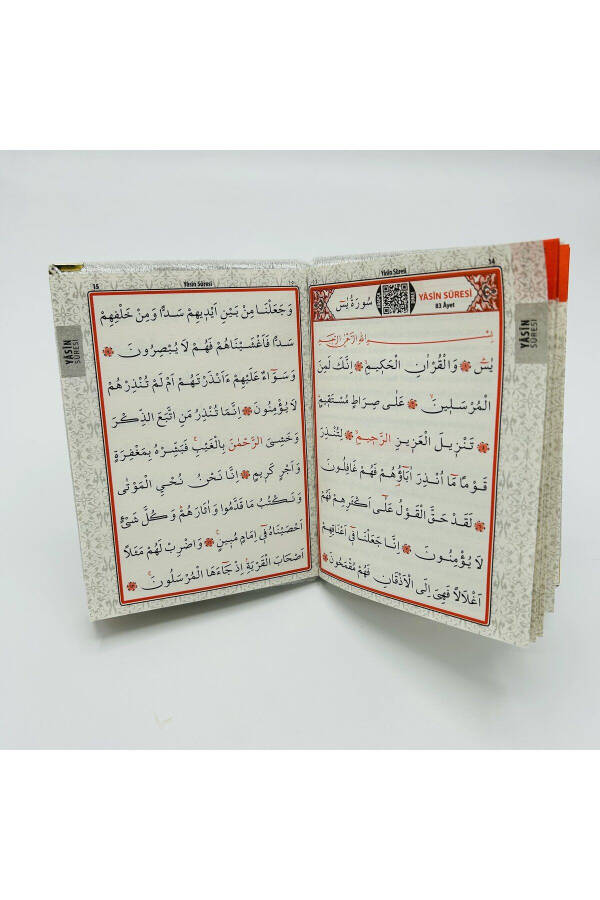 14
Yâsin Sûresi
سُورَةُ يٰسٓ
YÂSİN SÛRESİ
83 Âyet
بِسْمِ اللّٰهِ الرَّحْمٰنِ الرَّحِيمِ
يٰسٓ وَالْقُرْاٰنِ الْحَكِيمِ اِنَّكَ لَمِنَ
الْمُرْسَلِينَ عَلٰى صِرَاطٍ مُسْتَقِيمٍ
تَنْزِيلَ الْعَزِيزِ الرَّحِيمِ لِتُنْذِرَ
قَوْمًا مَٓا اُنْذِرَ اٰبَٓاؤُهُمْ فَهُمْ غَافِلُونَ
لَقَدْ حَقَّ الْقَوْلُ عَلٰٓى اَكْثَرِهِمْ فَهُمْ
لَا يُؤْمِنُونَ اِنَّا جَعَلْنَا فِٓي اَعْنَاقِهِمْ
اَغْلَالًا فَهِيَ اِلَى الْاَذْقَانِ فَهُمْ مُقْمَحُونَ
YÂSİN
SÛRESİ
15
Yâsin Sûresi
وَجَعَلْنَا مِنْ بَيْنِ اَيْدِيهِمْ سَدًّا وَمِنْ خَلْفِهِمْ
سَدًّا فَاَغْشَيْنَاهُمْ فَهُمْ لَا يُبْصِرُونَ
وَسَوَٓاءٌ عَلَيْهِمْ ءَاَنْذَرْتَهُمْ اَمْ لَمْ تُنْذِرْهُمْ
لَا يُؤْمِنُونَ اِنَّمَا تُنْذِرُ مَنِ اتَّبَعَ الذِّكْرَ
وَخَشِيَ الرَّحْمٰنَ بِالْغَيْبِ فَبَشِّرْهُ بِمَغْفِرَةٍ
وَاَجْرٍ كَرِيمٍ اِنَّا نَحْنُ نُحْيِ الْمَوْتٰى
وَنَكْتُبُ مَا قَدَّمُوا وَاٰثَارَهُمْ وَكُلَّ شَيْءٍ
اَحْصَيْنَاهُ فِٓي اِمَامٍ مُبِينٍ وَاضْرِبْ لَهُمْ مَثَلًا
اَصْحَابَ الْقَرْيَةِ اِذْ جَٓاءَهَا الْمُرْسَلُونَ
YÂSİN
SÛRESİ